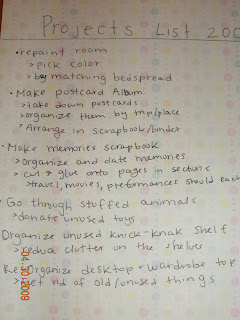 Projects List 200
• repaint room
> pick color
> buy matching bedspread
• Make postcard Album
> take down postcards
> organize them by
> Arrange in scrapbook/binder
• Make memories scrapbook
> Organize and date memories
> cut & glue onto pages in sections
> travel, movies, preformances should each
Go through stuffed animals
> donate unused toys
Organize unused knick-knak shelf
> reduce clutter on the shelves
Re-Organize desktop + wardrobe top
> get rid of old/unused things
04.30.2009